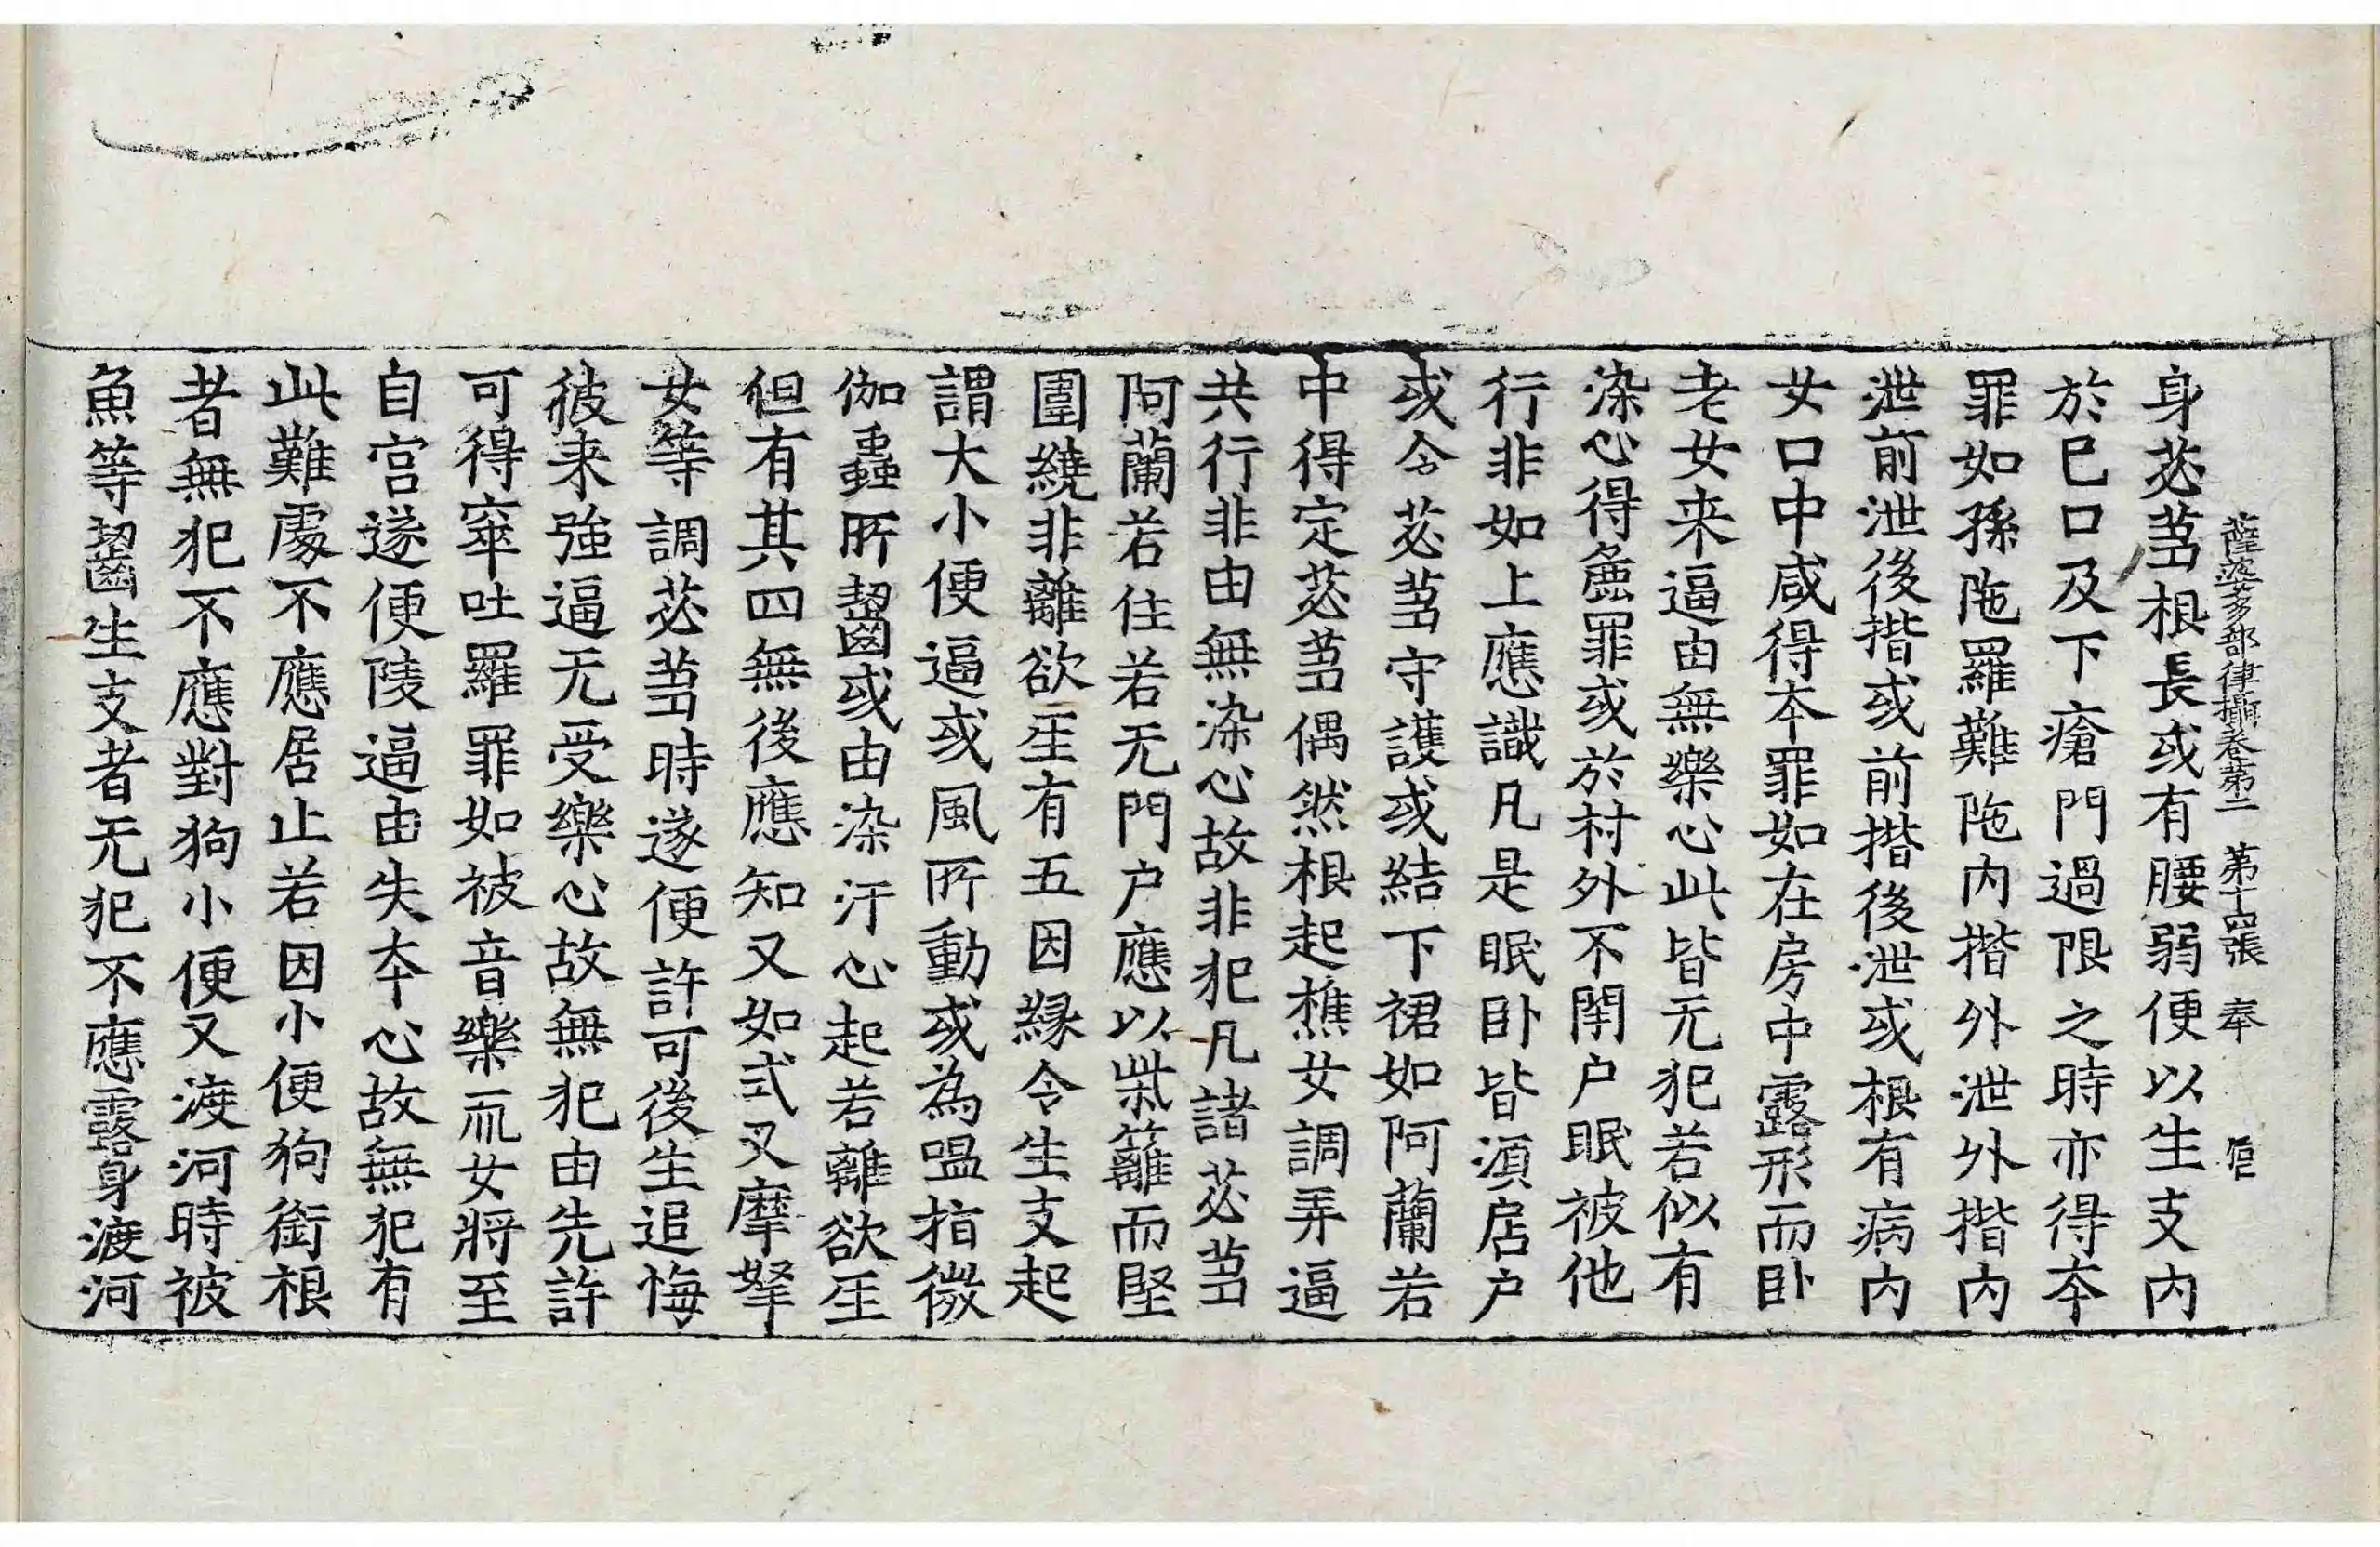 薩婆多部律攝卷第二 第十四張 奉
身苾蒭根長或有腰弱便以生支内
於巳口及下瘡門過限之時亦得夲
罪如孫陁羅難陁内揩外泄外揩内
泄前泄後揩或前揩後泄或根有病内
女口中咸得夲罪如在房中露形而卧
老女来逼由無樂心此皆无犯若似有
染心得麁罪或於村外不閇户眠被他
行非如上應識凡是眠卧皆湏居户
或令苾蒭守護或結下裙如阿蘭若
中得定苾蒭偶然根起樵女調弄逼
共行非由無染心故非犯凡諸苾蒭
阿蘭若住若无門户應以柴籬而堅
圍繞非離欲𤯔有五因緣令生支起
謂大小便逼或風所動或為嗢指徴
伽蟲所齧或由染汙心起若離欲𤯔
但有其四無後應知又如式叉摩拏
女等調苾蒭時遂便許可後生追悔
彼来強逼无受樂心故無犯由先許
可得窣吐羅罪如被音樂而女將至
自宫遂便陵逼由失夲心故無犯有
此難處不應居止若因小便狗銜根
者無犯不應對狗小便又渡河時被
魚等齧生支者无犯不應露身渡河